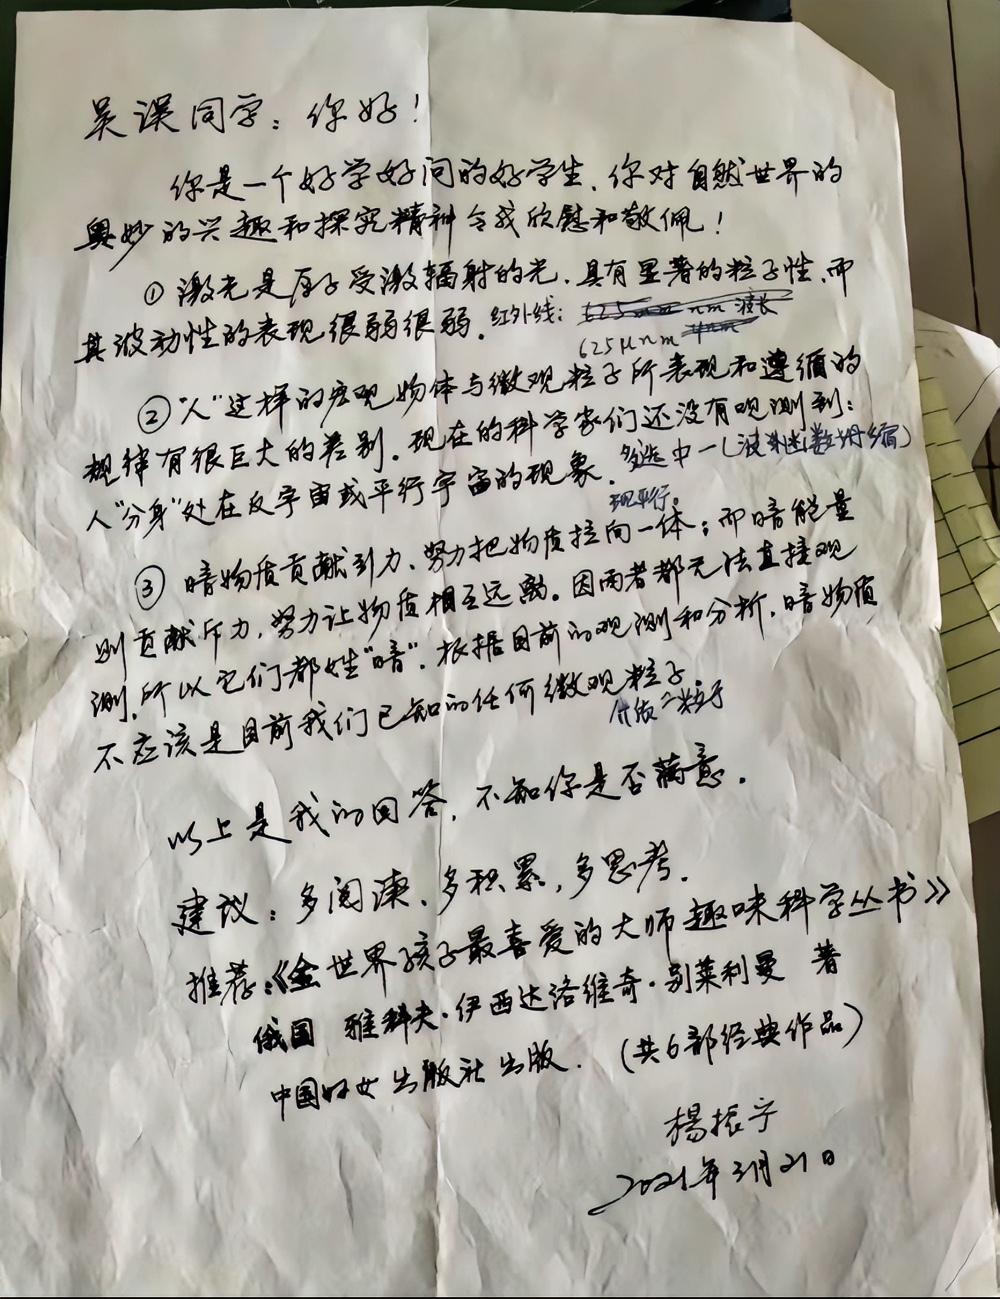 吴误同学：你好！
你是一个好学好问的好学生，你对自然世界的
奥妙的兴趣和探究精神令我欣慰和敬佩！
① 激光是原子受激辐射的光，具有显著的粒子性，而
其波动性的表现很弱很弱。红外线： nm 波长
625μnm
② “人”这样的宏观物体与微观粒子所表现和遵循的
规律有很巨大的差别。现在的科学家们还没有观测到：
人“分身”处在反宇宙或平行宇宙的现象。多选中一(波 函数坍缩)
平行。
③ 暗物质贡献引力，努力把物质拉向一体；而暗能量
则贡献斥力，努力让物质相互远离。因两者都无法直接观
测，所以它们都姓“暗”。根据目前的观测和分析，暗物质
不应该是目前我们已知的任何微观粒子
什么粒子
以上是我的回答，不知你是否满意。
建议：多阅读、多积累，多思考。
推荐：《全世界孩子最喜爱的大师趣味科学丛书》
俄国 雅科夫·伊西达洛维奇·别莱利曼 著
中国妇女出版社出版．（共6部经典作品）
楊振宁
2021年3月21日